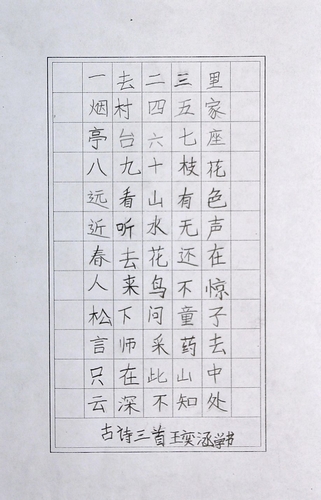 一去二三里
烟村四五家
亭台六七座
八九十枝花
远看山有色
近听水无声
春去花还在
人来鸟不惊
松下问童子
言师采药去
只在此山中
云深不知处
古诗三首王奕涵学书